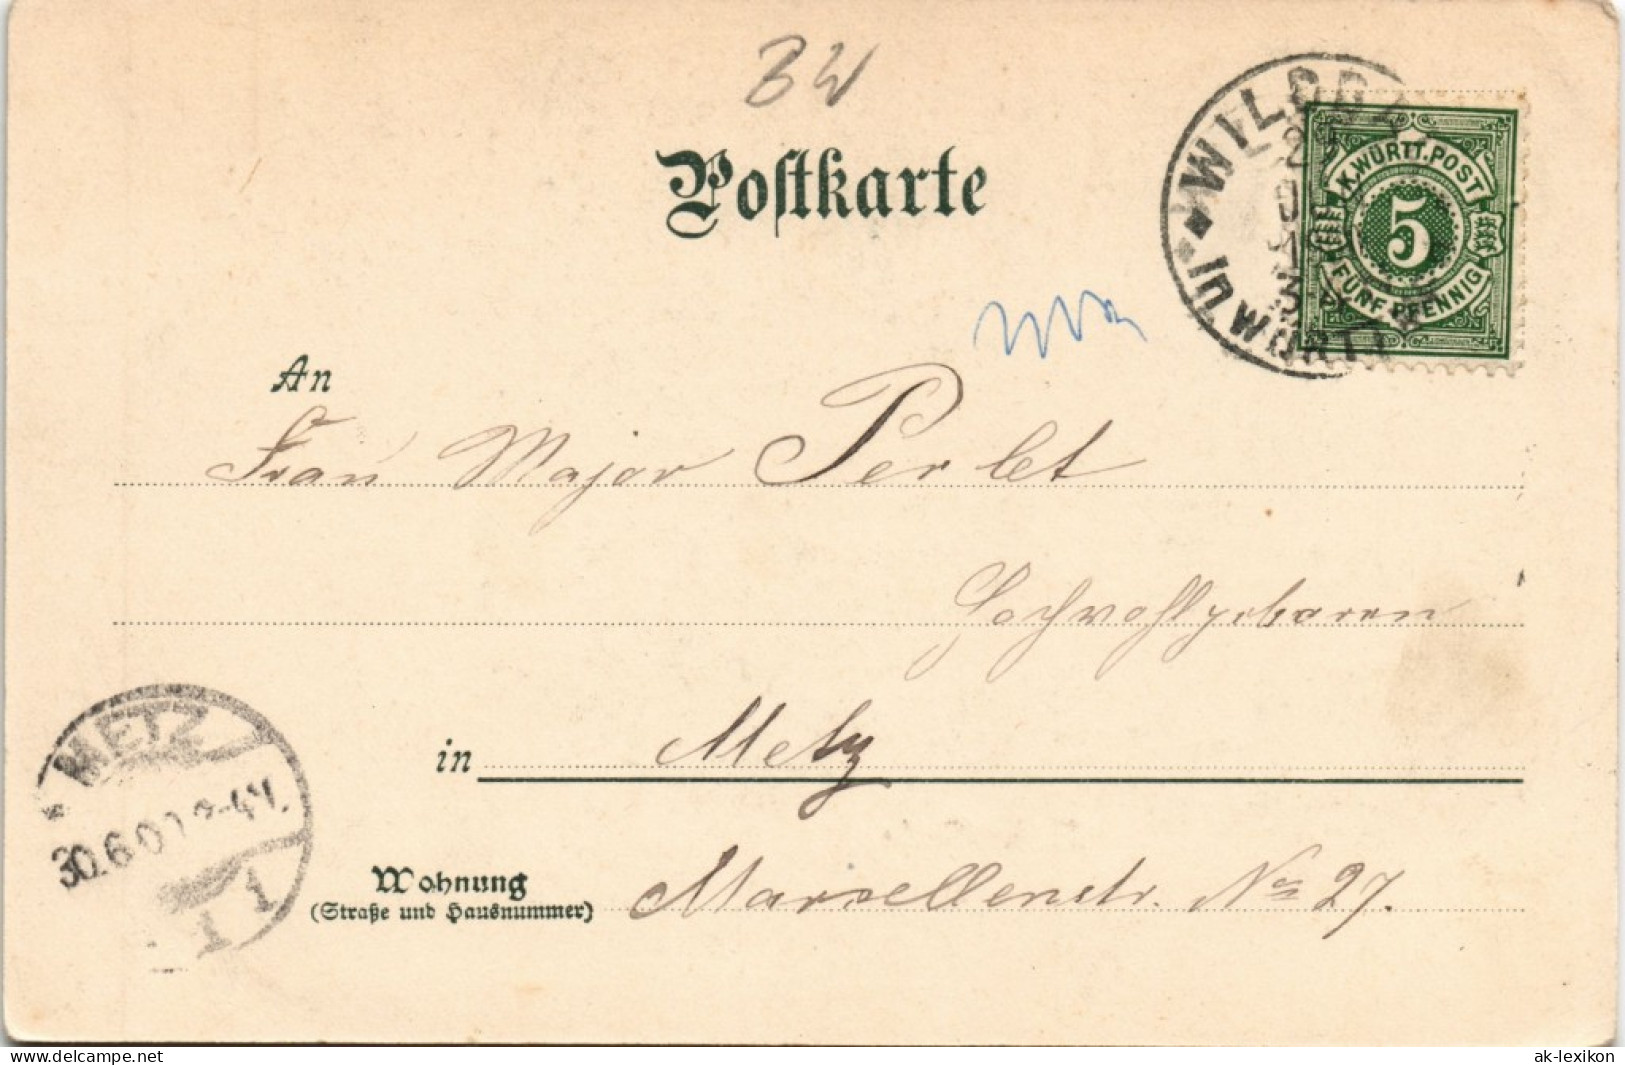 BW
Postkarte
K. WÜRTT. POST
5
FÜNF PFENNIG
WÜRTT
An
Frau Major Perlet
Hochwohlgeboren
in Metz
METZ
30.6.0
1
Wohnung
(Straße und Hausnummer) Marsellenstr. No 27.
www.delcampe.net
ak-lexikon